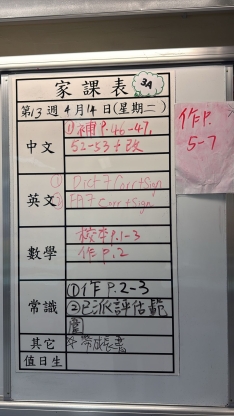 家課表 3A
第13週 4月14日(星期二)
中文
①補P.46-47,
52-53+改
作P.
5-7
英文
① Dict 7 Corr+Sign
② FA7 Corr+Sign
數學
校本P.1-3
作P.2
常識
①作P.2-3
②已派評估範
圍
其它
帶成長
值日生